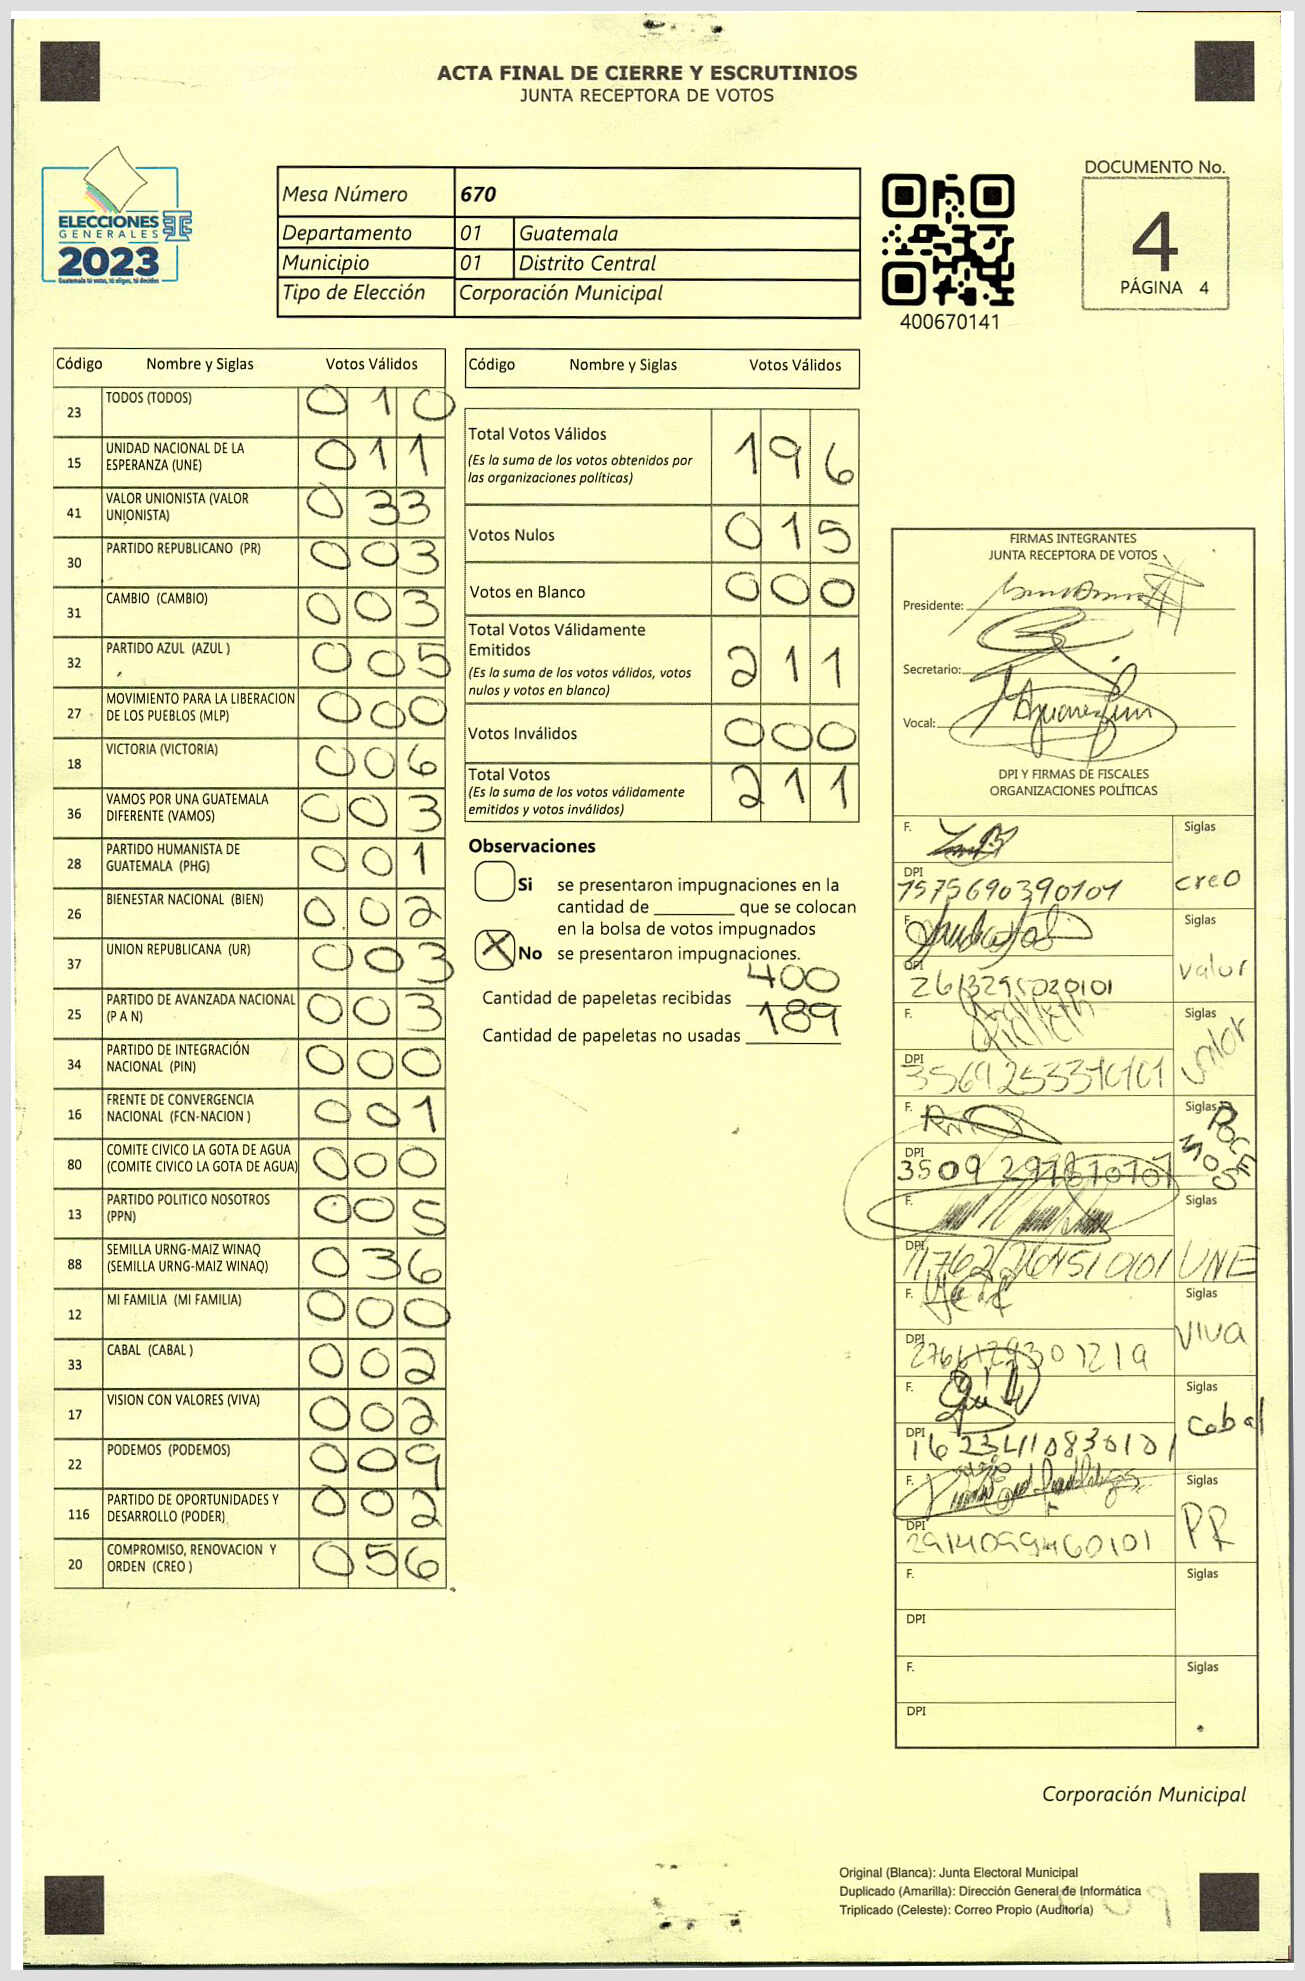 ACTA FINAL DE CIERRE Y ESCRUTINIOS
JUNTA RECEPTORA DE VOTOS
ELECCIONES
GENERALES
2023
Guatemala tú votas, tú eliges, tú decides
Mesa Número 670
Departamento 01 Guatemala
Municipio 01 Distrito Central
Tipo de Elección Corporación Municipal
400670141
DOCUMENTO No.
4
PÁGINA 4
Código Nombre y Siglas Votos Válidos
23 TODOS (TODOS) 0 1 0
15 UNIDAD NACIONAL DE LA ESPERANZA (UNE) 0 1 1
41 VALOR UNIONISTA (VALOR UNIONISTA) 0 3 3
30 PARTIDO REPUBLICANO (PR) 0 0 3
31 CAMBIO (CAMBIO) 0 0 3
32 PARTIDO AZUL (AZUL ) 0 0 5
27 MOVIMIENTO PARA LA LIBERACION DE LOS PUEBLOS (MLP) 0 0 0
18 VICTORIA (VICTORIA) 0 0 6
36 VAMOS POR UNA GUATEMALA DIFERENTE (VAMOS) 0 0 3
28 PARTIDO HUMANISTA DE GUATEMALA (PHG) 0 0 1
26 BIENESTAR NACIONAL (BIEN) 0 0 2
37 UNION REPUBLICANA (UR) 0 0 3
25 PARTIDO DE AVANZADA NACIONAL (P A N) 0 0 3
34 PARTIDO DE INTEGRACIÓN NACIONAL (PIN) 0 0 0
16 FRENTE DE CONVERGENCIA NACIONAL (FCN-NACION ) 0 0 1
80 COMITE CIVICO LA GOTA DE AGUA (COMITE CIVICO LA GOTA DE AGUA) 0 0 0
13 PARTIDO POLITICO NOSOTROS (PPN) 0 0 5
88 SEMILLA URNG-MAIZ WINAQ (SEMILLA URNG-MAIZ WINAQ) 0 3 6
12 MI FAMILIA (MI FAMILIA) 0 0 0
33 CABAL (CABAL ) 0 0 2
17 VISION CON VALORES (VIVA) 0 0 2
22 PODEMOS (PODEMOS) 0 0 9
116 PARTIDO DE OPORTUNIDADES Y DESARROLLO (PODER) 0 0 2
20 COMPROMISO, RENOVACION Y ORDEN (CREO ) 0 5 6
Código Nombre y Siglas Votos Válidos
Total Votos Válidos 1 9 6
(Es la suma de los votos obtenidos por
las organizaciones políticas)
Votos Nulos 0 1 5
Votos en Blanco 0 0 0
Total Votos Válidamente
Emitidos 2 1 1
(Es la suma de los votos válidos, votos
nulos y votos en blanco)
Votos Inválidos 0 0 0
Total Votos 2 1 1
(Es la suma de los votos válidamente
emitidos y votos inválidos)
Observaciones
Si se presentaron impugnaciones en la
cantidad de ________ que se colocan
en la bolsa de votos impugnados
X No se presentaron impugnaciones.
Cantidad de papeletas recibidas 400
Cantidad de papeletas no usadas 189
FIRMAS INTEGRANTES
JUNTA RECEPTORA DE VOTOS
Presidente:
Secretario:
Vocal:
DPI Y FIRMAS DE FISCALES
ORGANIZACIONES POLÍTICAS
F. Siglas
DPI 1575690390101 creo
F. Siglas
DPI 2613295020101 valor
F. Siglas
DPI valor
F. Siglas
DPI PODEMOS
F. Siglas
DPI UNE
F. Siglas
DPI viva
F. Siglas
DPI cabal
F. Siglas
DPI PR
F. Siglas
DPI
F. Siglas
DPI
Corporación Municipal
Original (Blanca): Junta Electoral Municipal
Duplicado (Amarilla): Dirección General de Informática
Triplicado (Celeste): Correo Propio (Auditoría)